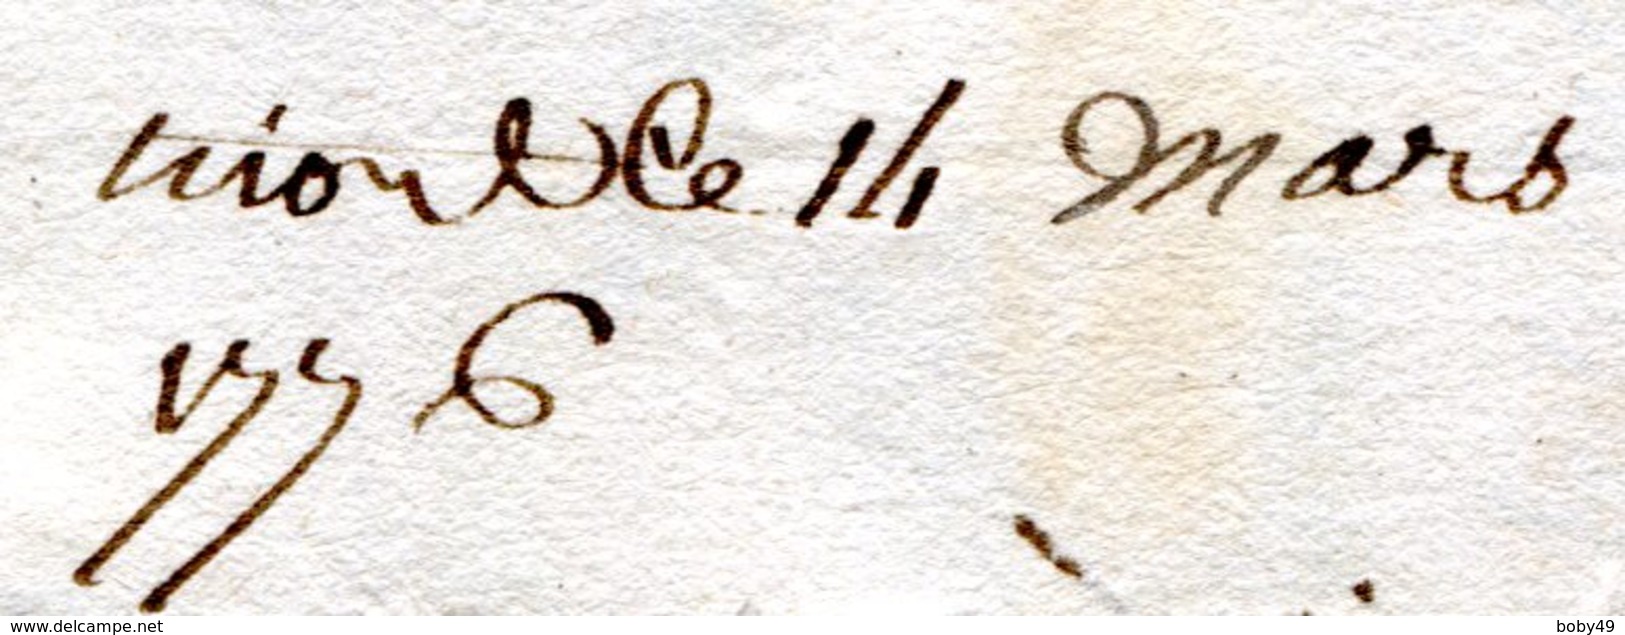 nion le 14 Mars
1776
www.delcampe.net
boby49